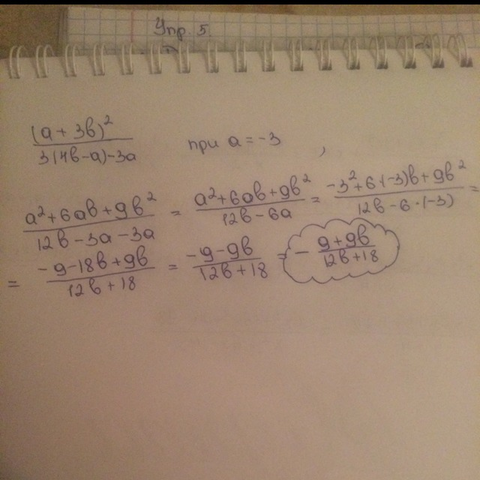 Упр 5.
(a + 3b)² / 3(4b-a)-3a при a = -3 ,
a² + 6ab + 9b² / 12b - 3a - 3a = a² + 6ab + 9b² / 12b - 6a = -3² + 6·(-3)b + 9b² / 12b - 6·(-3) =
= -9 - 18b + 9b / 12b + 18 = -9 - 9b / 12b + 18 = - 9 + 9b / 12b + 18